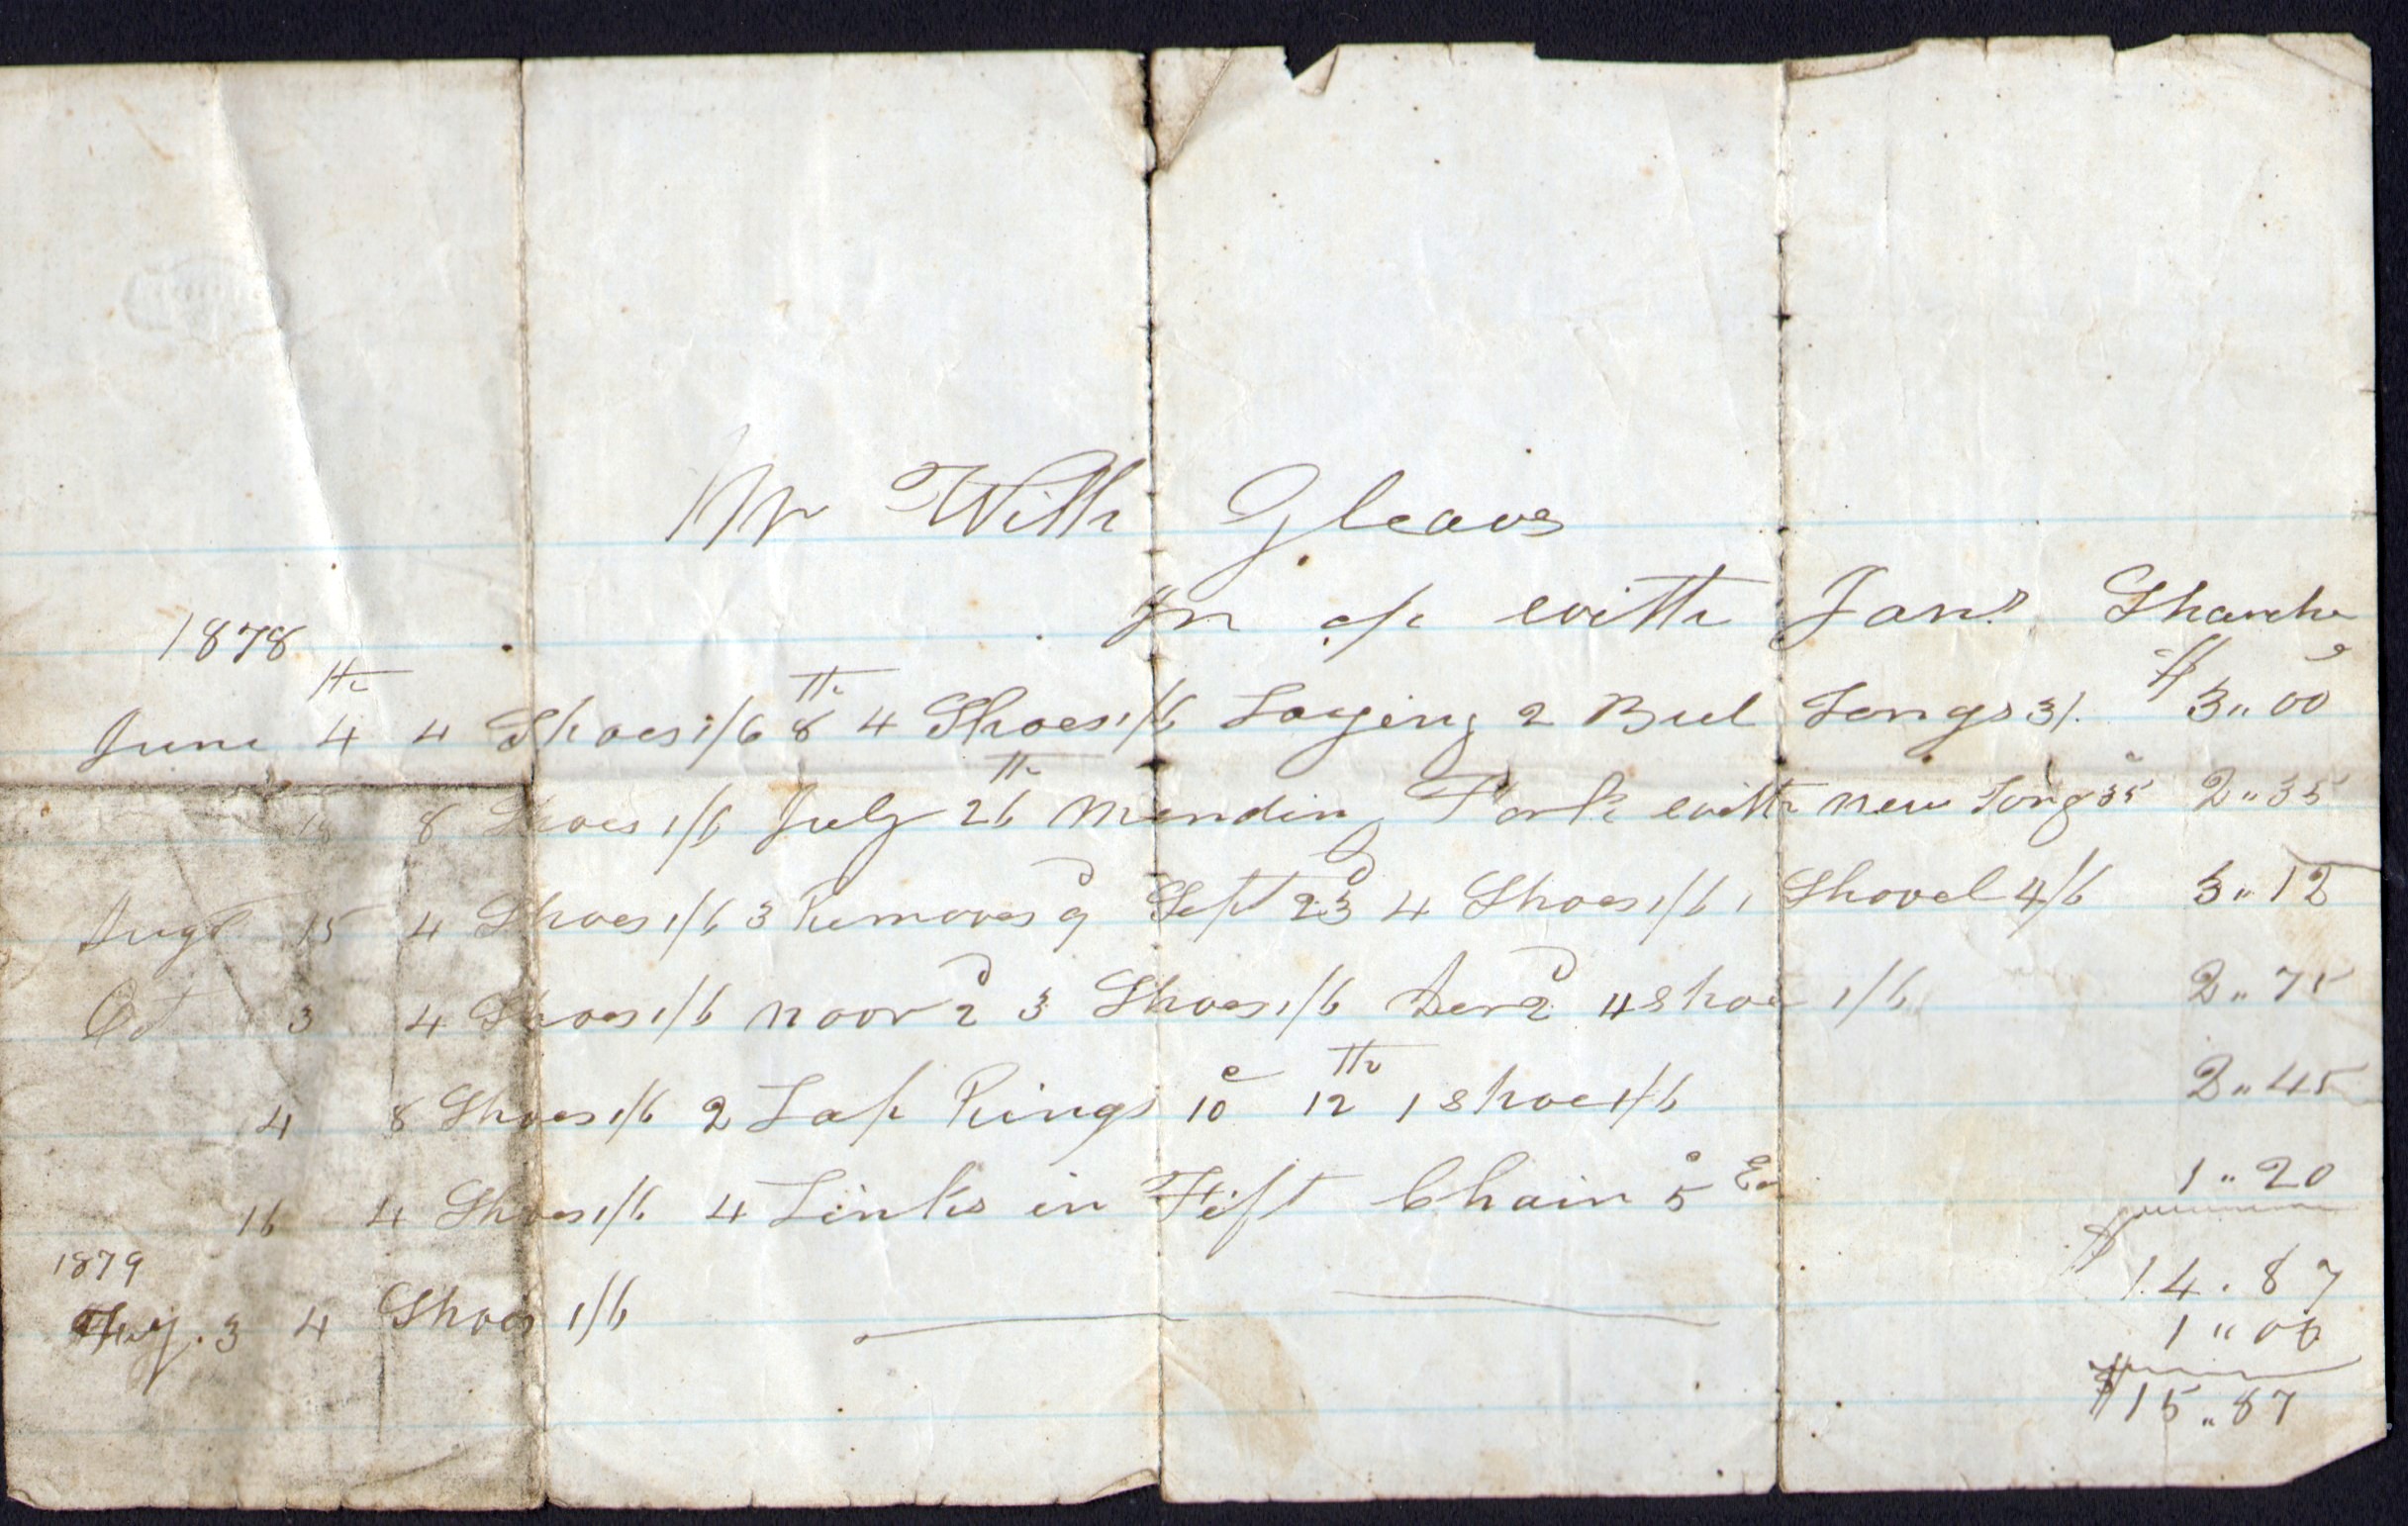 Mr Will Gleaves
In a/c with Jas.
1878
June 4th 4 Shoes 1/6 8th 4 Shoes 1/6 Laying 2 Bul Tongs 3/. $3"00
18 8 Shoes 1/6 July 26th Mending Fork with new Tong 35c 2"35
Augt 15 4 Shoes 1/6 3 Removes 9d Sept 23d 4 Shoes 1/6 1 Shovel 4/6 3"12
Oct 3 4 Shoes 1/6 Novr 2d 3 Shoes 1/6 Decr 2d 4 Shoe 1/6 2"75
4 8 Shoes 1/6 2 Lap Rings 10c 12th 1 Shoe 1/6 2"45
16 4 Shoes 1/6 4 Links in Fift Chain 5c Ea 1"20
$14.87
1879
3 4 Shoes 1/6 1"00
$15"87